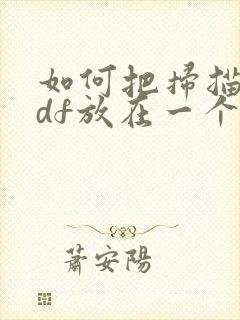 如何把掃描
df放在一个
蕭安陽